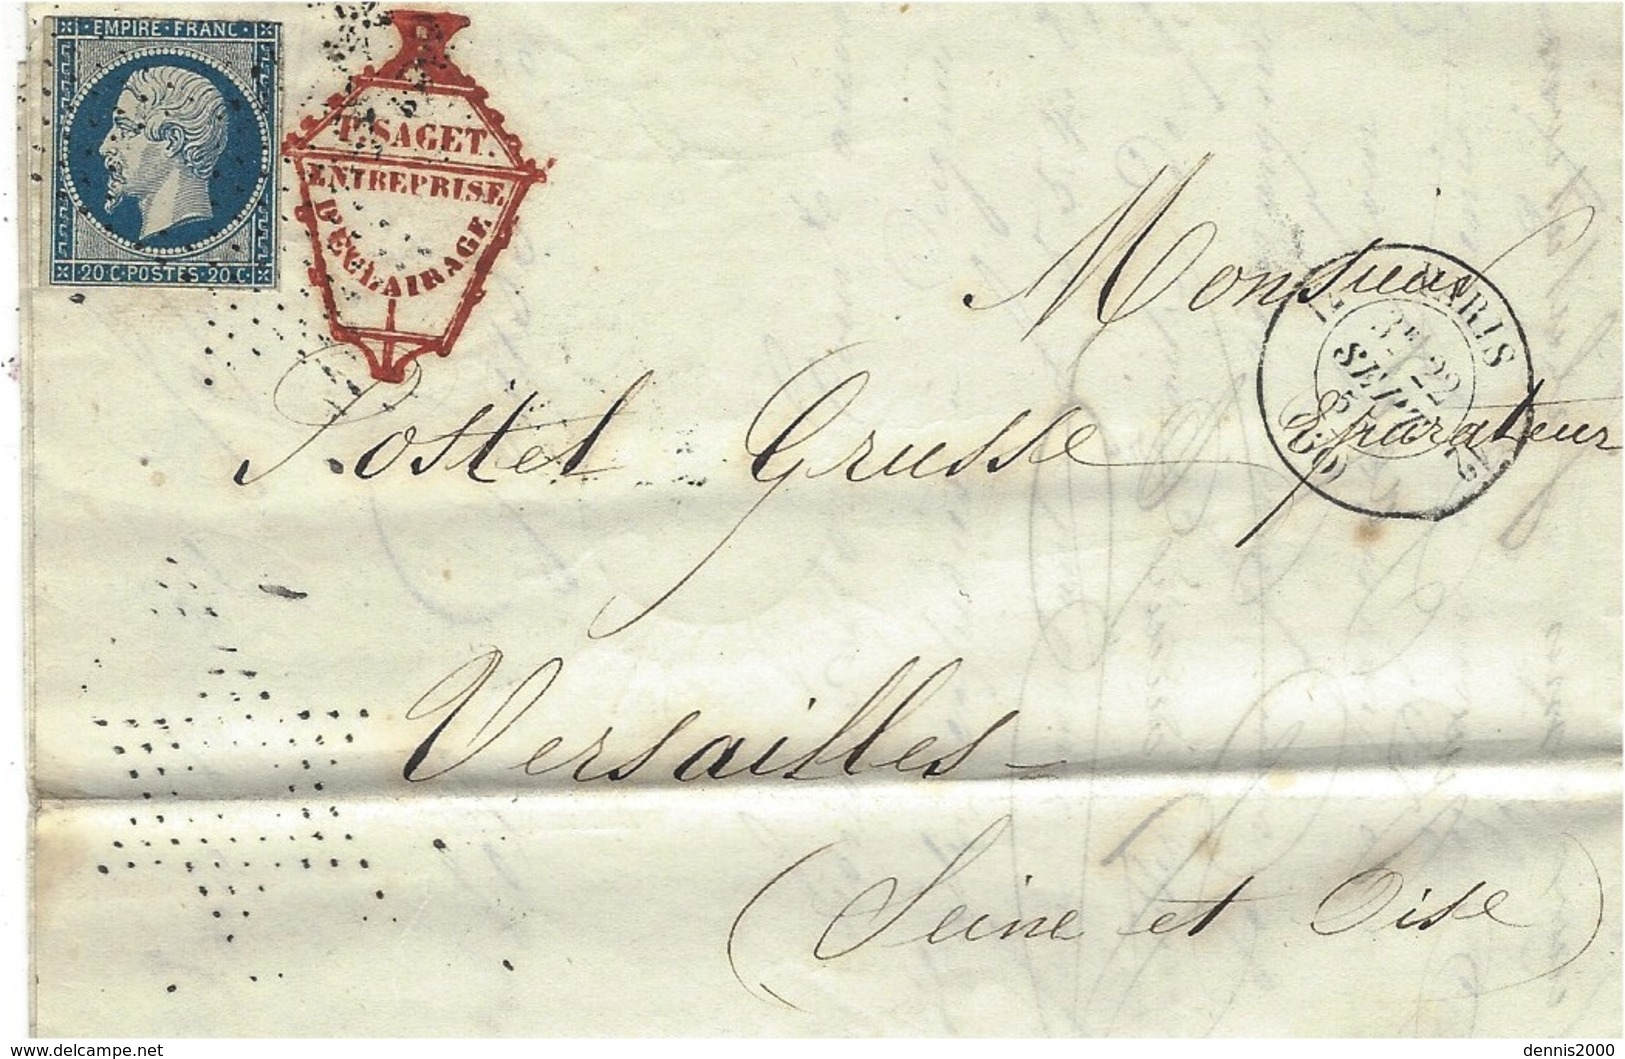 EMPIRE · FRANC ·
20 C · POSTES · 20 C ·
P. SAGET.
ENTREPRISE
D'ECLAIRAGE
Monsieur
PARIS
3E 22
SEPT.
Postel Grusse Epurateur
Versailles
(Seine et Oise)
www.delcampe.net
dennis2000